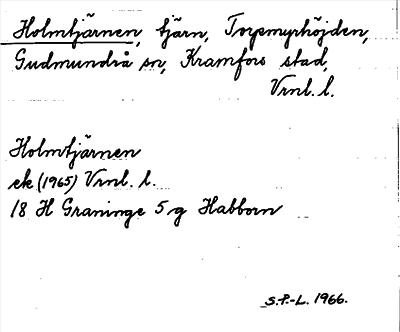 Holmtjärnen, tjärn, Torpsmyrhöjden,
Gudmundrå sn, Kramfors stad,
Vrnl. l.
Holmtjärnen
ek (1965) Vrnl. l.
18 H Graninge 5 g Habborn
S.P.-L. 1966.